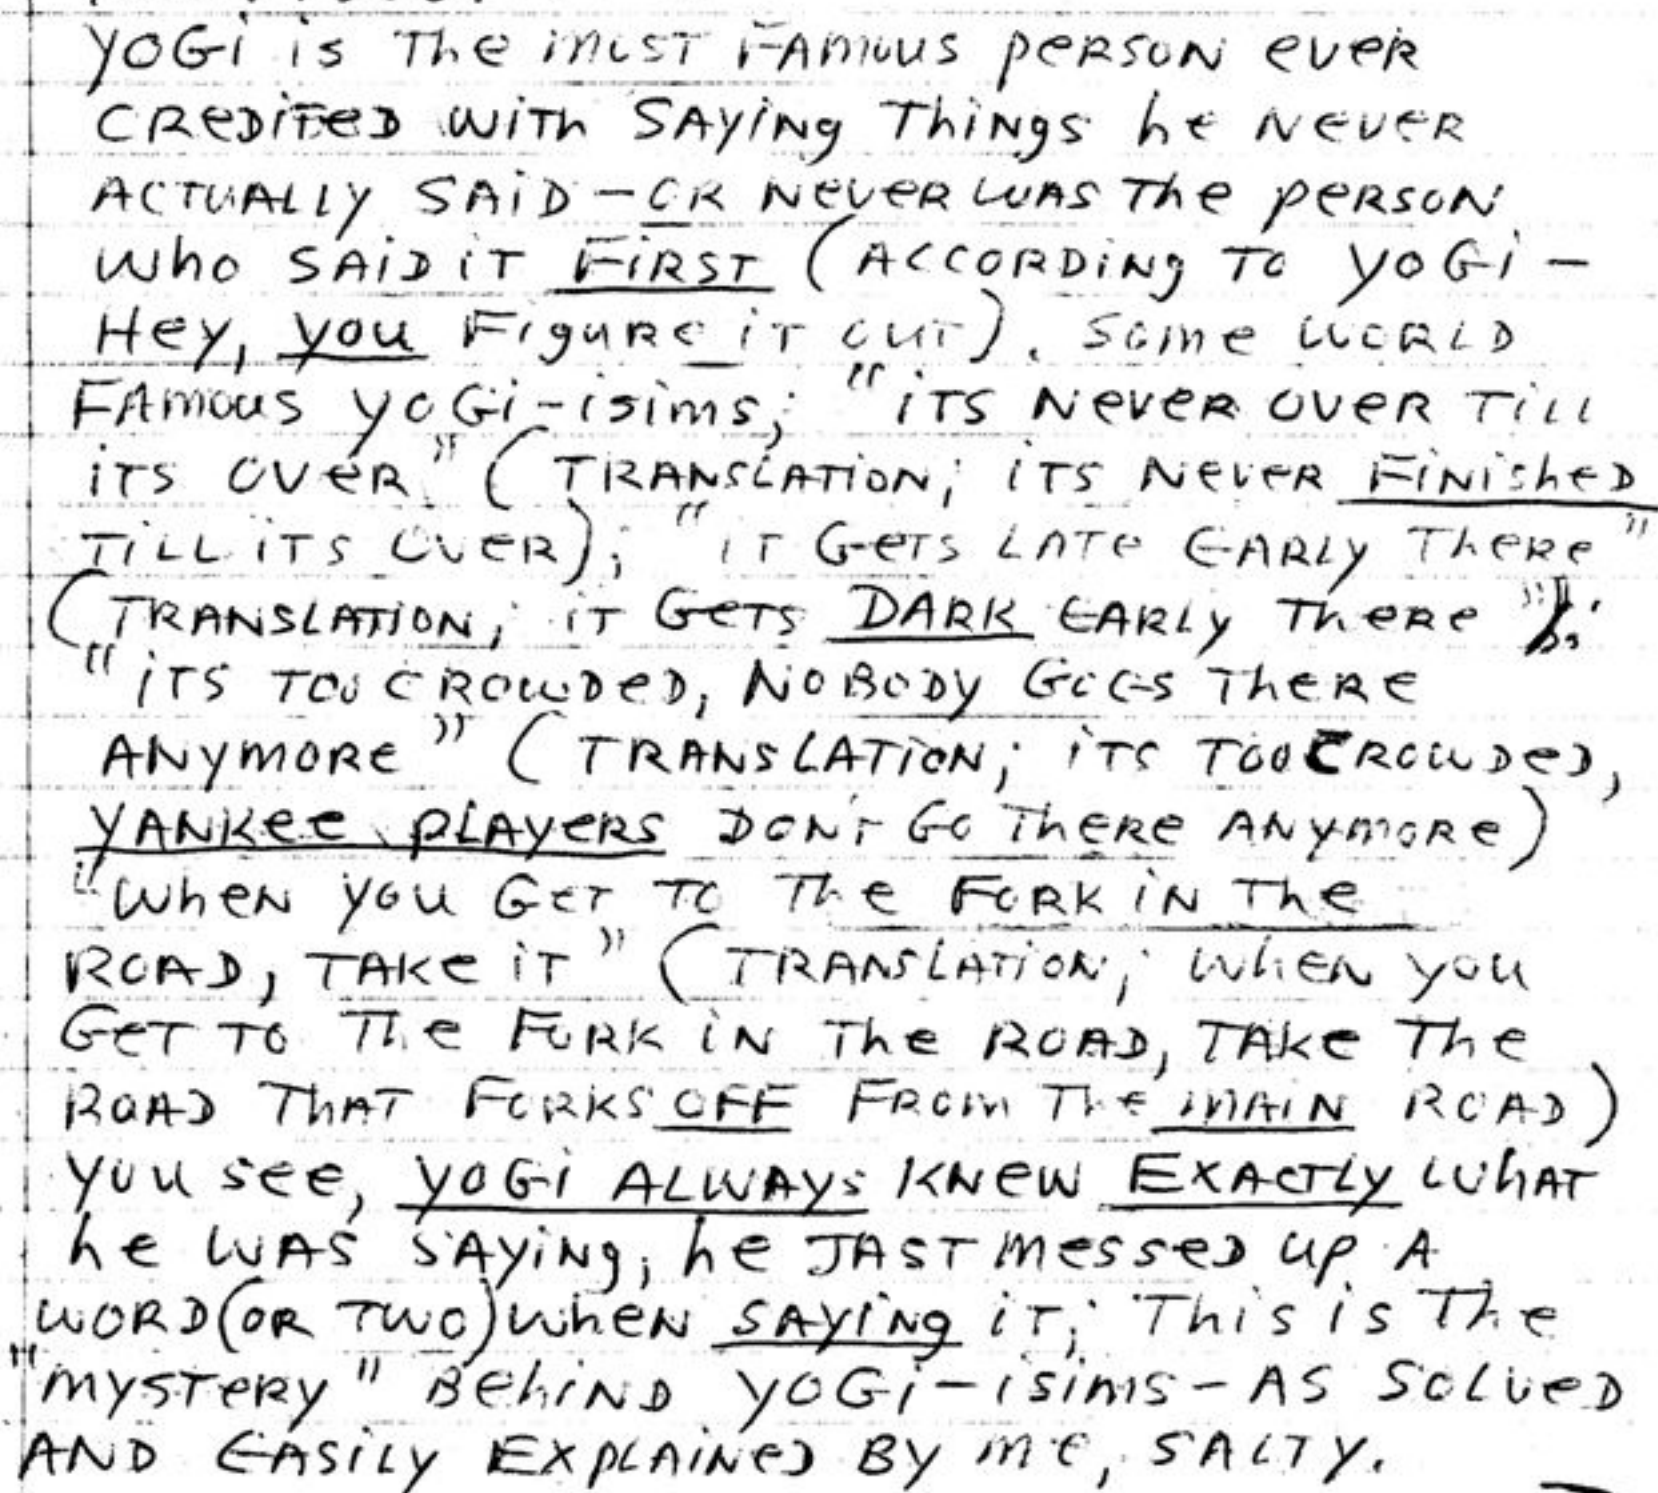 YOGi is The most FAmous peRSON eveR
CReDiTeD wiTh SAYiNg Things he NeveR
ACTUALLY SAiD – OR NeVeR WAS The peRSON
Who SAiD iT FiRST (ACCORDiNg TO YOGi –
Hey, you FiguRe iT OuT). Some WORLD
FAmous YOGi-isims; "iTS NeveR OVeR TiLL
iTS OVeR" (TRANSLATiON; iTS NeveR FiNisheD
TiLL iTS OVeR); "iT GeTS LATe EARLY TheRe"
(TRANSLATiON; iT GeTS DARK EARLY TheRe");
"iTS TOO CROWDeD, NOBODY GOES TheRe
ANYmORe" (TRANSLATiON; iTS TOO CROWDeD,
YANKee pLAYeRS DON'T GO TheRe ANYmORe)
"WheN YOu GeT TO The FORK iN The
ROAD, TAKe iT" (TRANSLATiON; WheN you
GeT TO The FORK iN The ROAD, TAKe The
ROAD ThAT FORKS OFF FROm The mAiN ROAD)
You see, YOGi ALWAYS KNeW EXACTLY WhAT
he WAS SAYiNg; he JAST messeD up A
WORD (OR TWO) wheN SAYiNg iT; This is The
"mYSTeRY" BehiND YOGi-isims – AS SOLveD
AND EASiLY EXpLAiNeD BY me, SALTY.